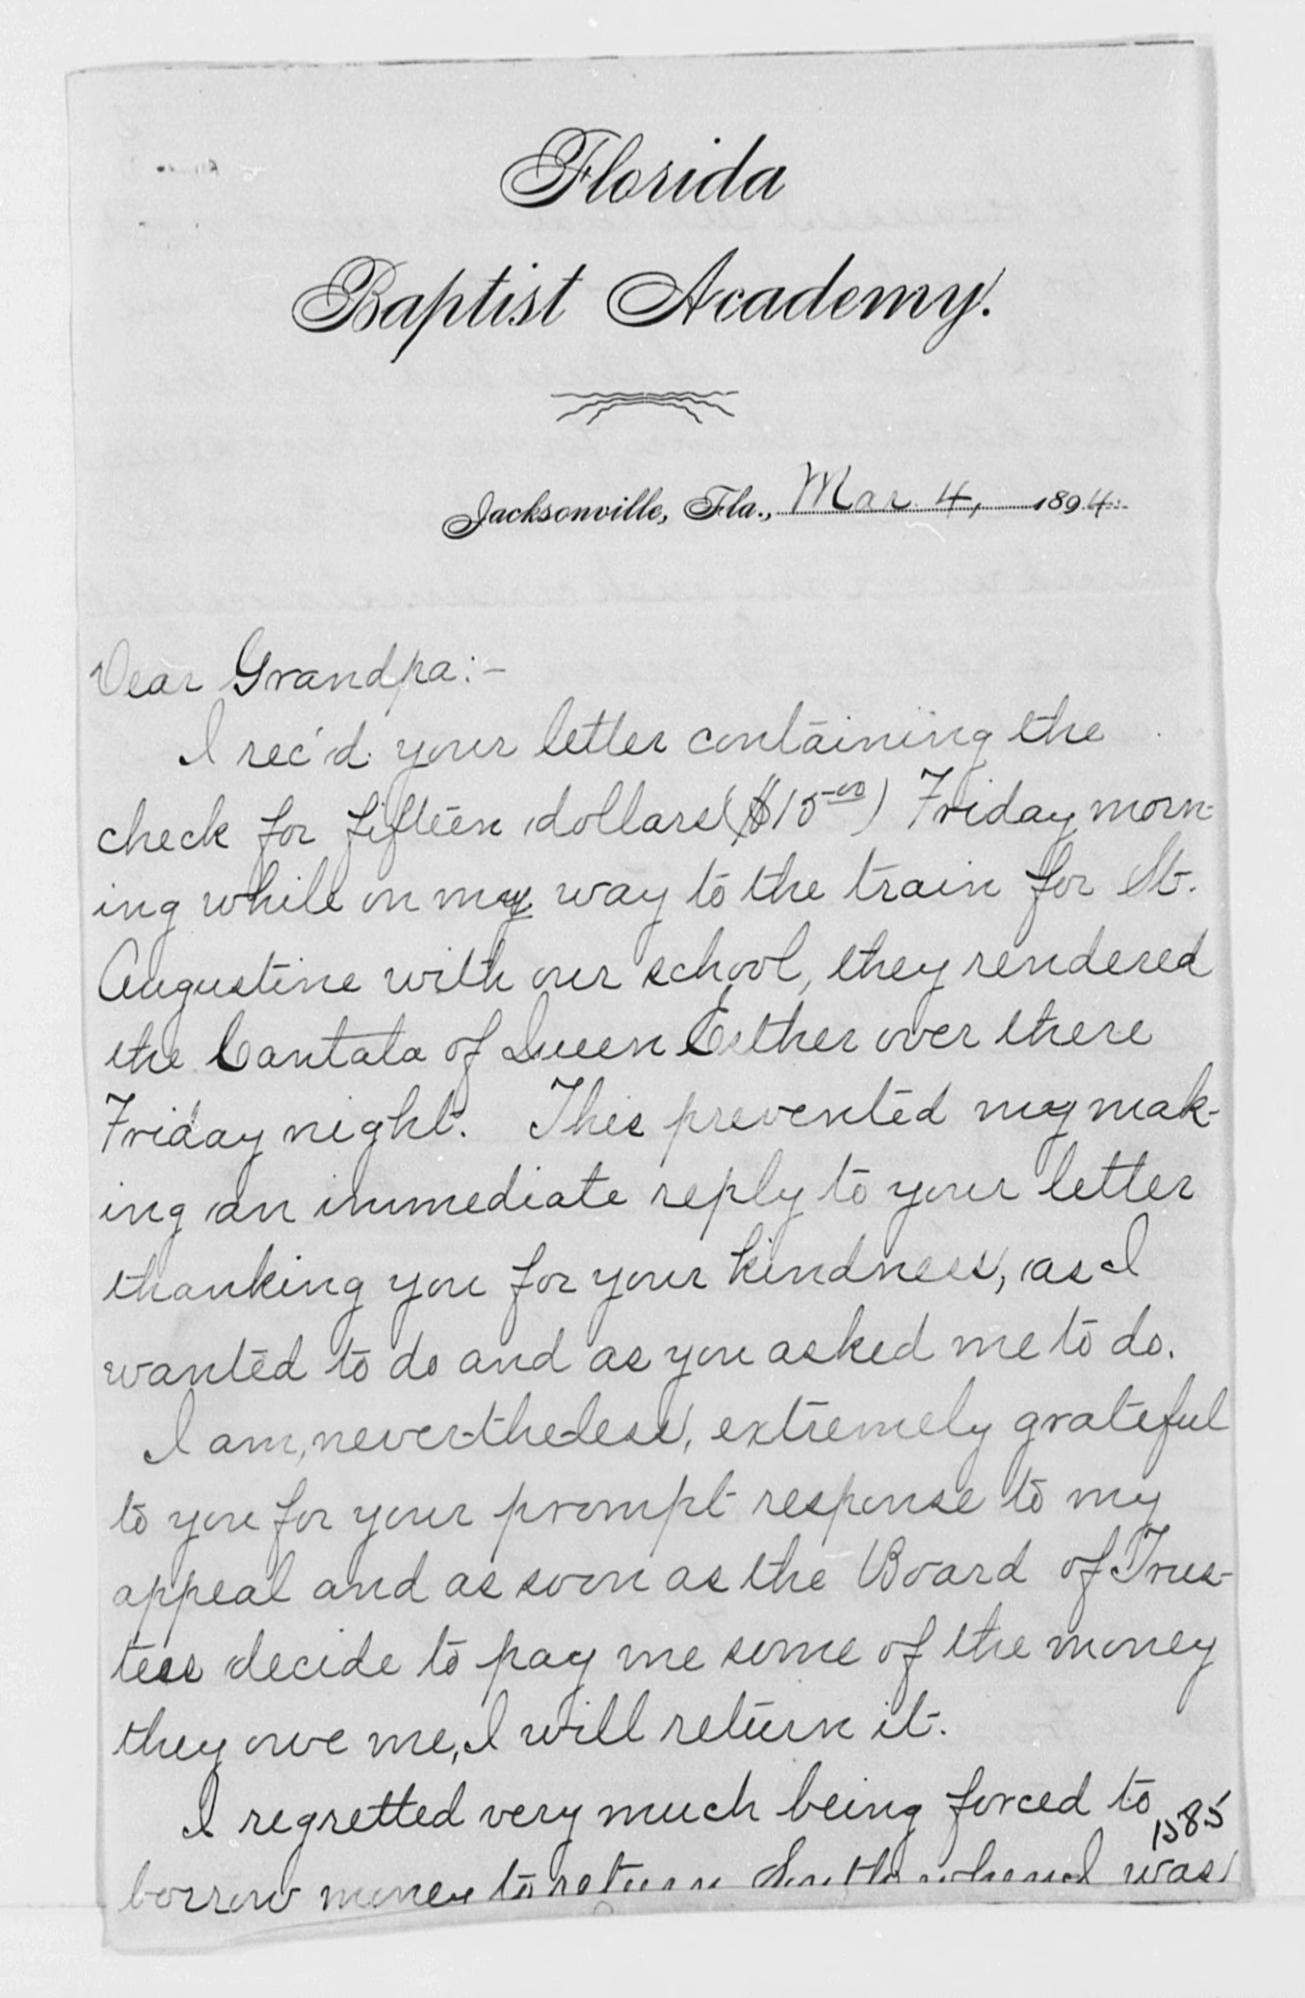 Florida
Baptist Academy.
Jacksonville, Fla., Mar. 4, 1894.
Dear Grandpa:-
I rec'd. your letter containing the
check for fifteen dollars ($15.00) Friday morn-
ing while on my way to the train for St.
Augustine with our school, they rendered
the Cantata of Queen Esther over there
Friday night. This prevented my mak-
ing an immediate reply to your letter
thanking you for your kindness, as I
wanted to do and as you asked me to do.
I am, nevertheless, extremely grateful
to you for your prompt response to my
appeal and as soon as the Board of Trus-
tees decide to pay me some of the money
they owe me, I will return it.
I regretted very much being forced to
1585
borrow money to return South when I was